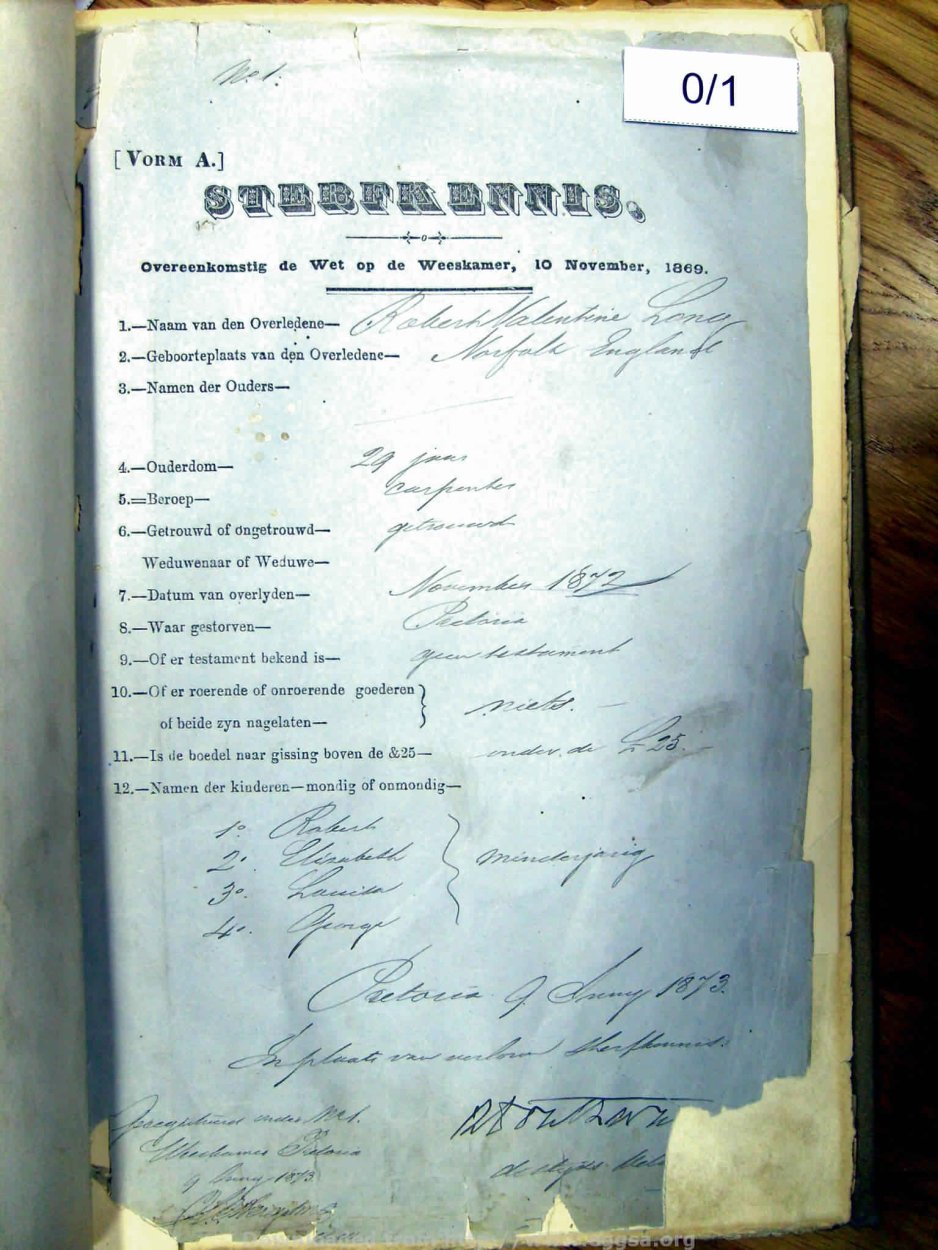 No 1.
0/1
[VORM A.]
STERFKENNIS.
Overeenkomstig de Wet op de Weeskamer, 10 November, 1869.
1.—Naam van den Overledene— Robert Valentine Long
2.—Geboorteplaats van den Overledene— Norfolk England
3.—Namen der Ouders—
4.—Ouderdom— 29 jaar
5.=Beroep— Carpenter
6.—Getrouwd of ongetrouwd— getrouwd
Weduwenaar of Weduwe—
7.—Datum van overlyden— November 1872
8.—Waar gestorven— Pretoria
9.—Of er testament bekend is— geen testament
10.—Of er roerende of onroerende goederen
of beide zyn nagelaten— niets.—
11.—Is de boedel naar gissing boven de &25— onder de £25.
12.—Namen der kinderen—mondig of onmondig—
1o. Robert
2o. Elizabeth minderjarig
3o. Louisa
4o. George
Pretoria 9 Juny 1873.
In plaats van verloren sterfkennis
Geregistreerd onder No 1.
Weeskamer Pretoria
9 Juny 1873
de